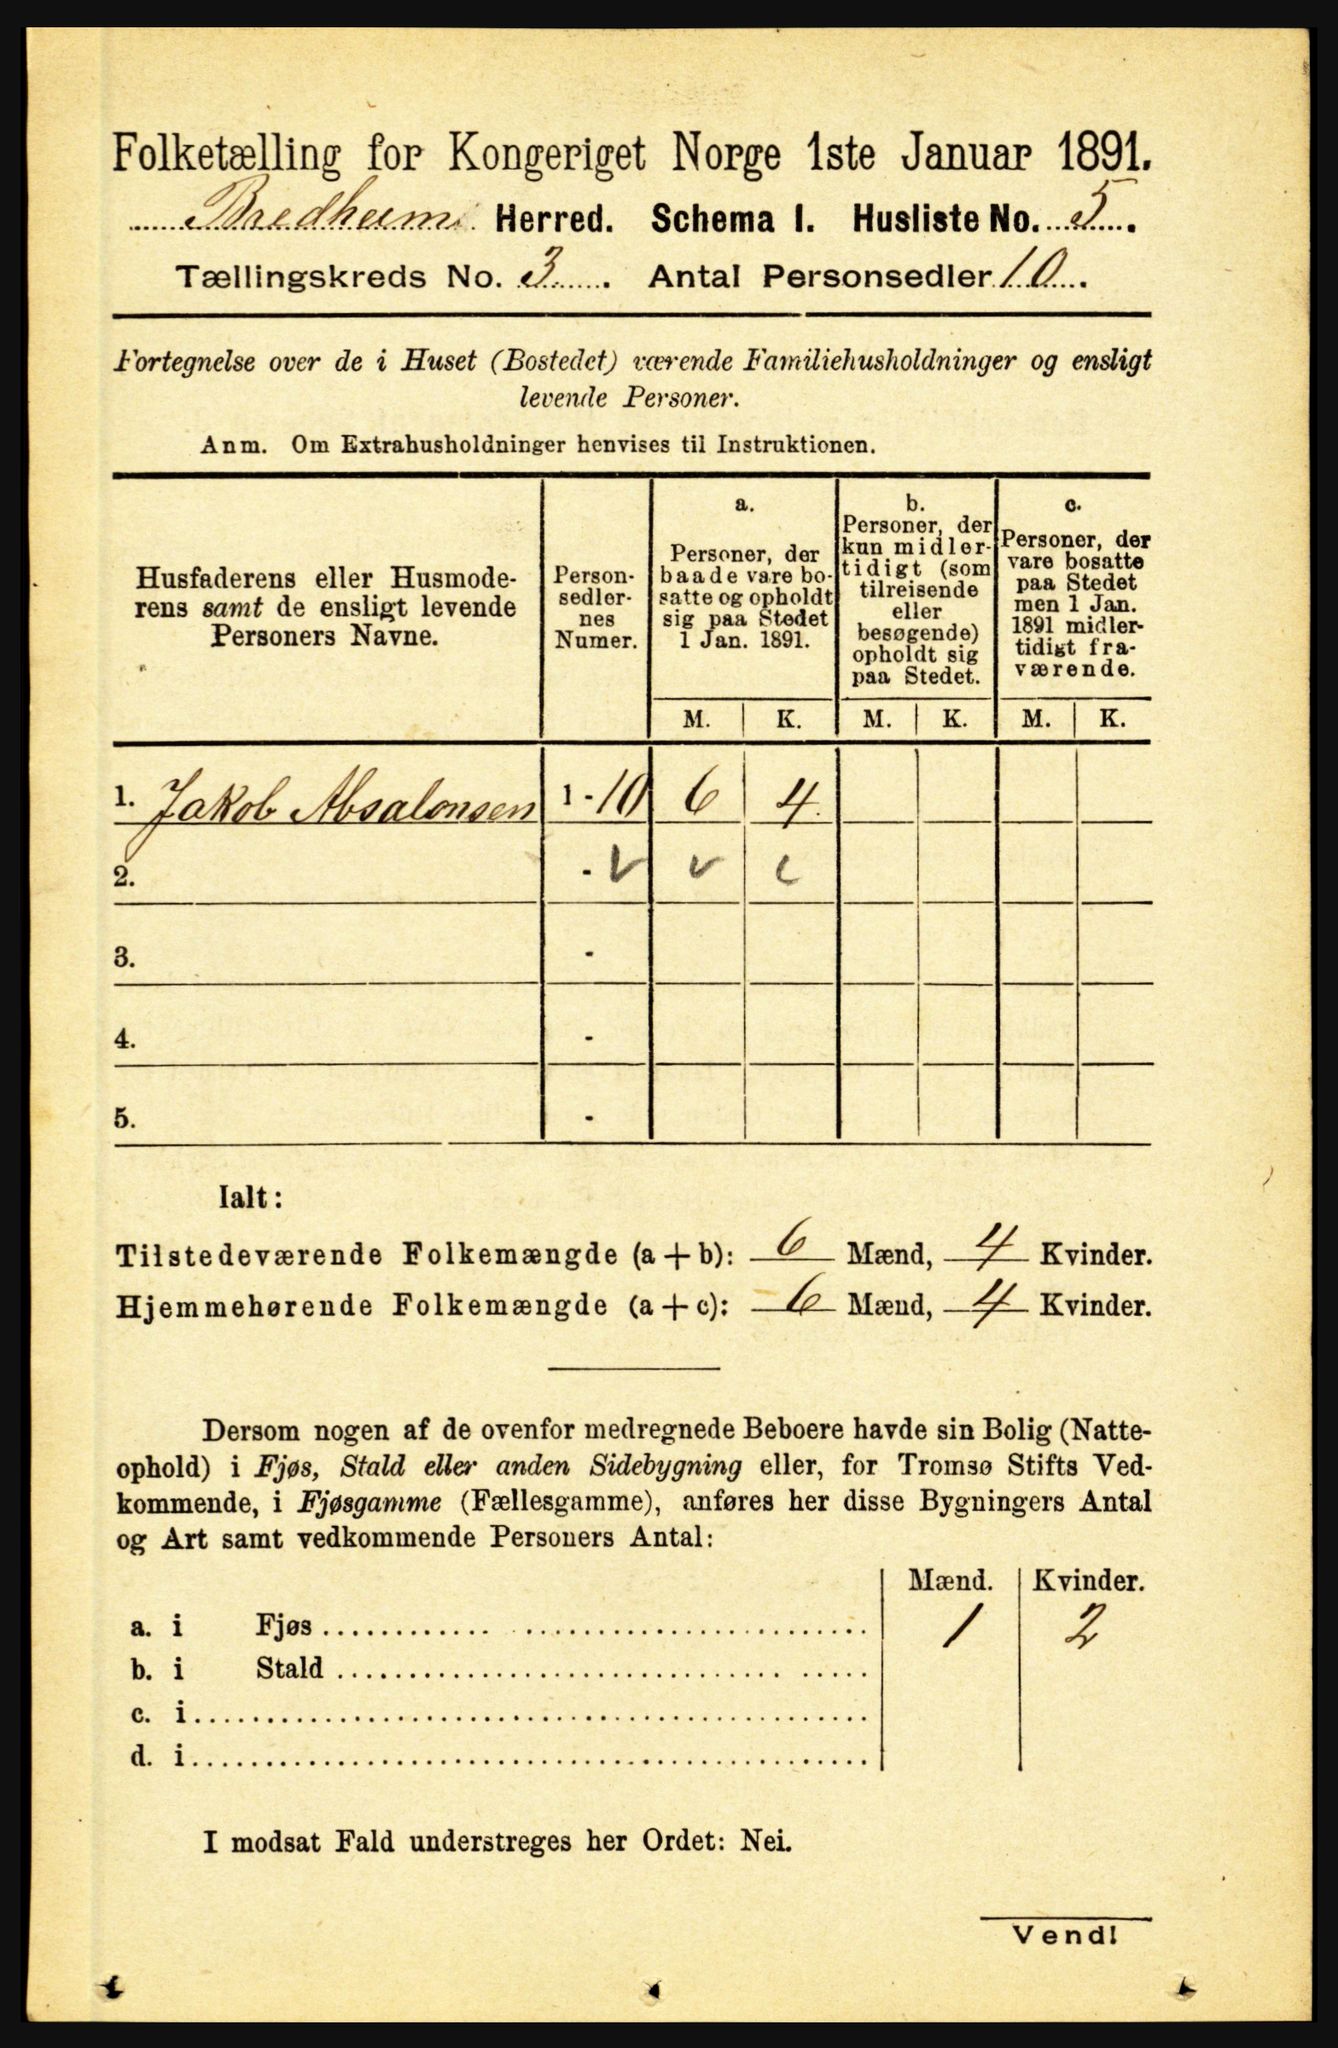 Folketælling for Kongeriget Norge 1ste Januar 1891.
Bredheim Herred. Schema I. Husliste No. 5.
Tællingskreds No. 3. Antal Personsedler 10.
Fortegnelse over de i Huset (Bostedet) værende Familiehusholdninger og ensligt
levende Personer.
Anm. Om Extrahusholdninger henvises til Instruktionen.
Husfaderens eller Husmode-
rens samt de ensligt levende
Personers Navne.
Person-
sedler-
nes
Numer.
a.
Personer, der
baade vare bo-
satte og opholdt
sig paa Stedet
1 Jan. 1891.
b.
Personer, der
kun midler-
tidigt (som
tilreisende
eller
besøgende)
opholdt sig
paa Stedet.
c.
Personer, der
vare bosatte
paa Stedet
men 1 Jan.
1891 midler-
tidigt fra-
værende.
M. K. M. K. M. K.
1. Jakob Absalonsen 1 - 10 6 4
2. -
3. -
4. -
5. -
Ialt:
Tilstedeværende Folkemængde (a + b): 6 Mænd, 4 Kvinder.
Hjemmehørende Folkemængde (a + c): 6 Mænd, 4 Kvinder.
Dersom nogen af de ovenfor medregnede Beboere havde sin Bolig (Natte-
ophold) i Fjøs, Stald eller anden Sidebygning eller, for Tromsø Stifts Ved-
kommende, i Fjøsgamme (Fællesgamme), anføres her disse Bygningers Antal
og Art samt vedkommende Personers Antal:
Mænd. Kvinder.
a. i Fjøs 1 2
b. i Stald
c. i
d. i
I modsat Fald understreges her Ordet: Nei.
Vend!